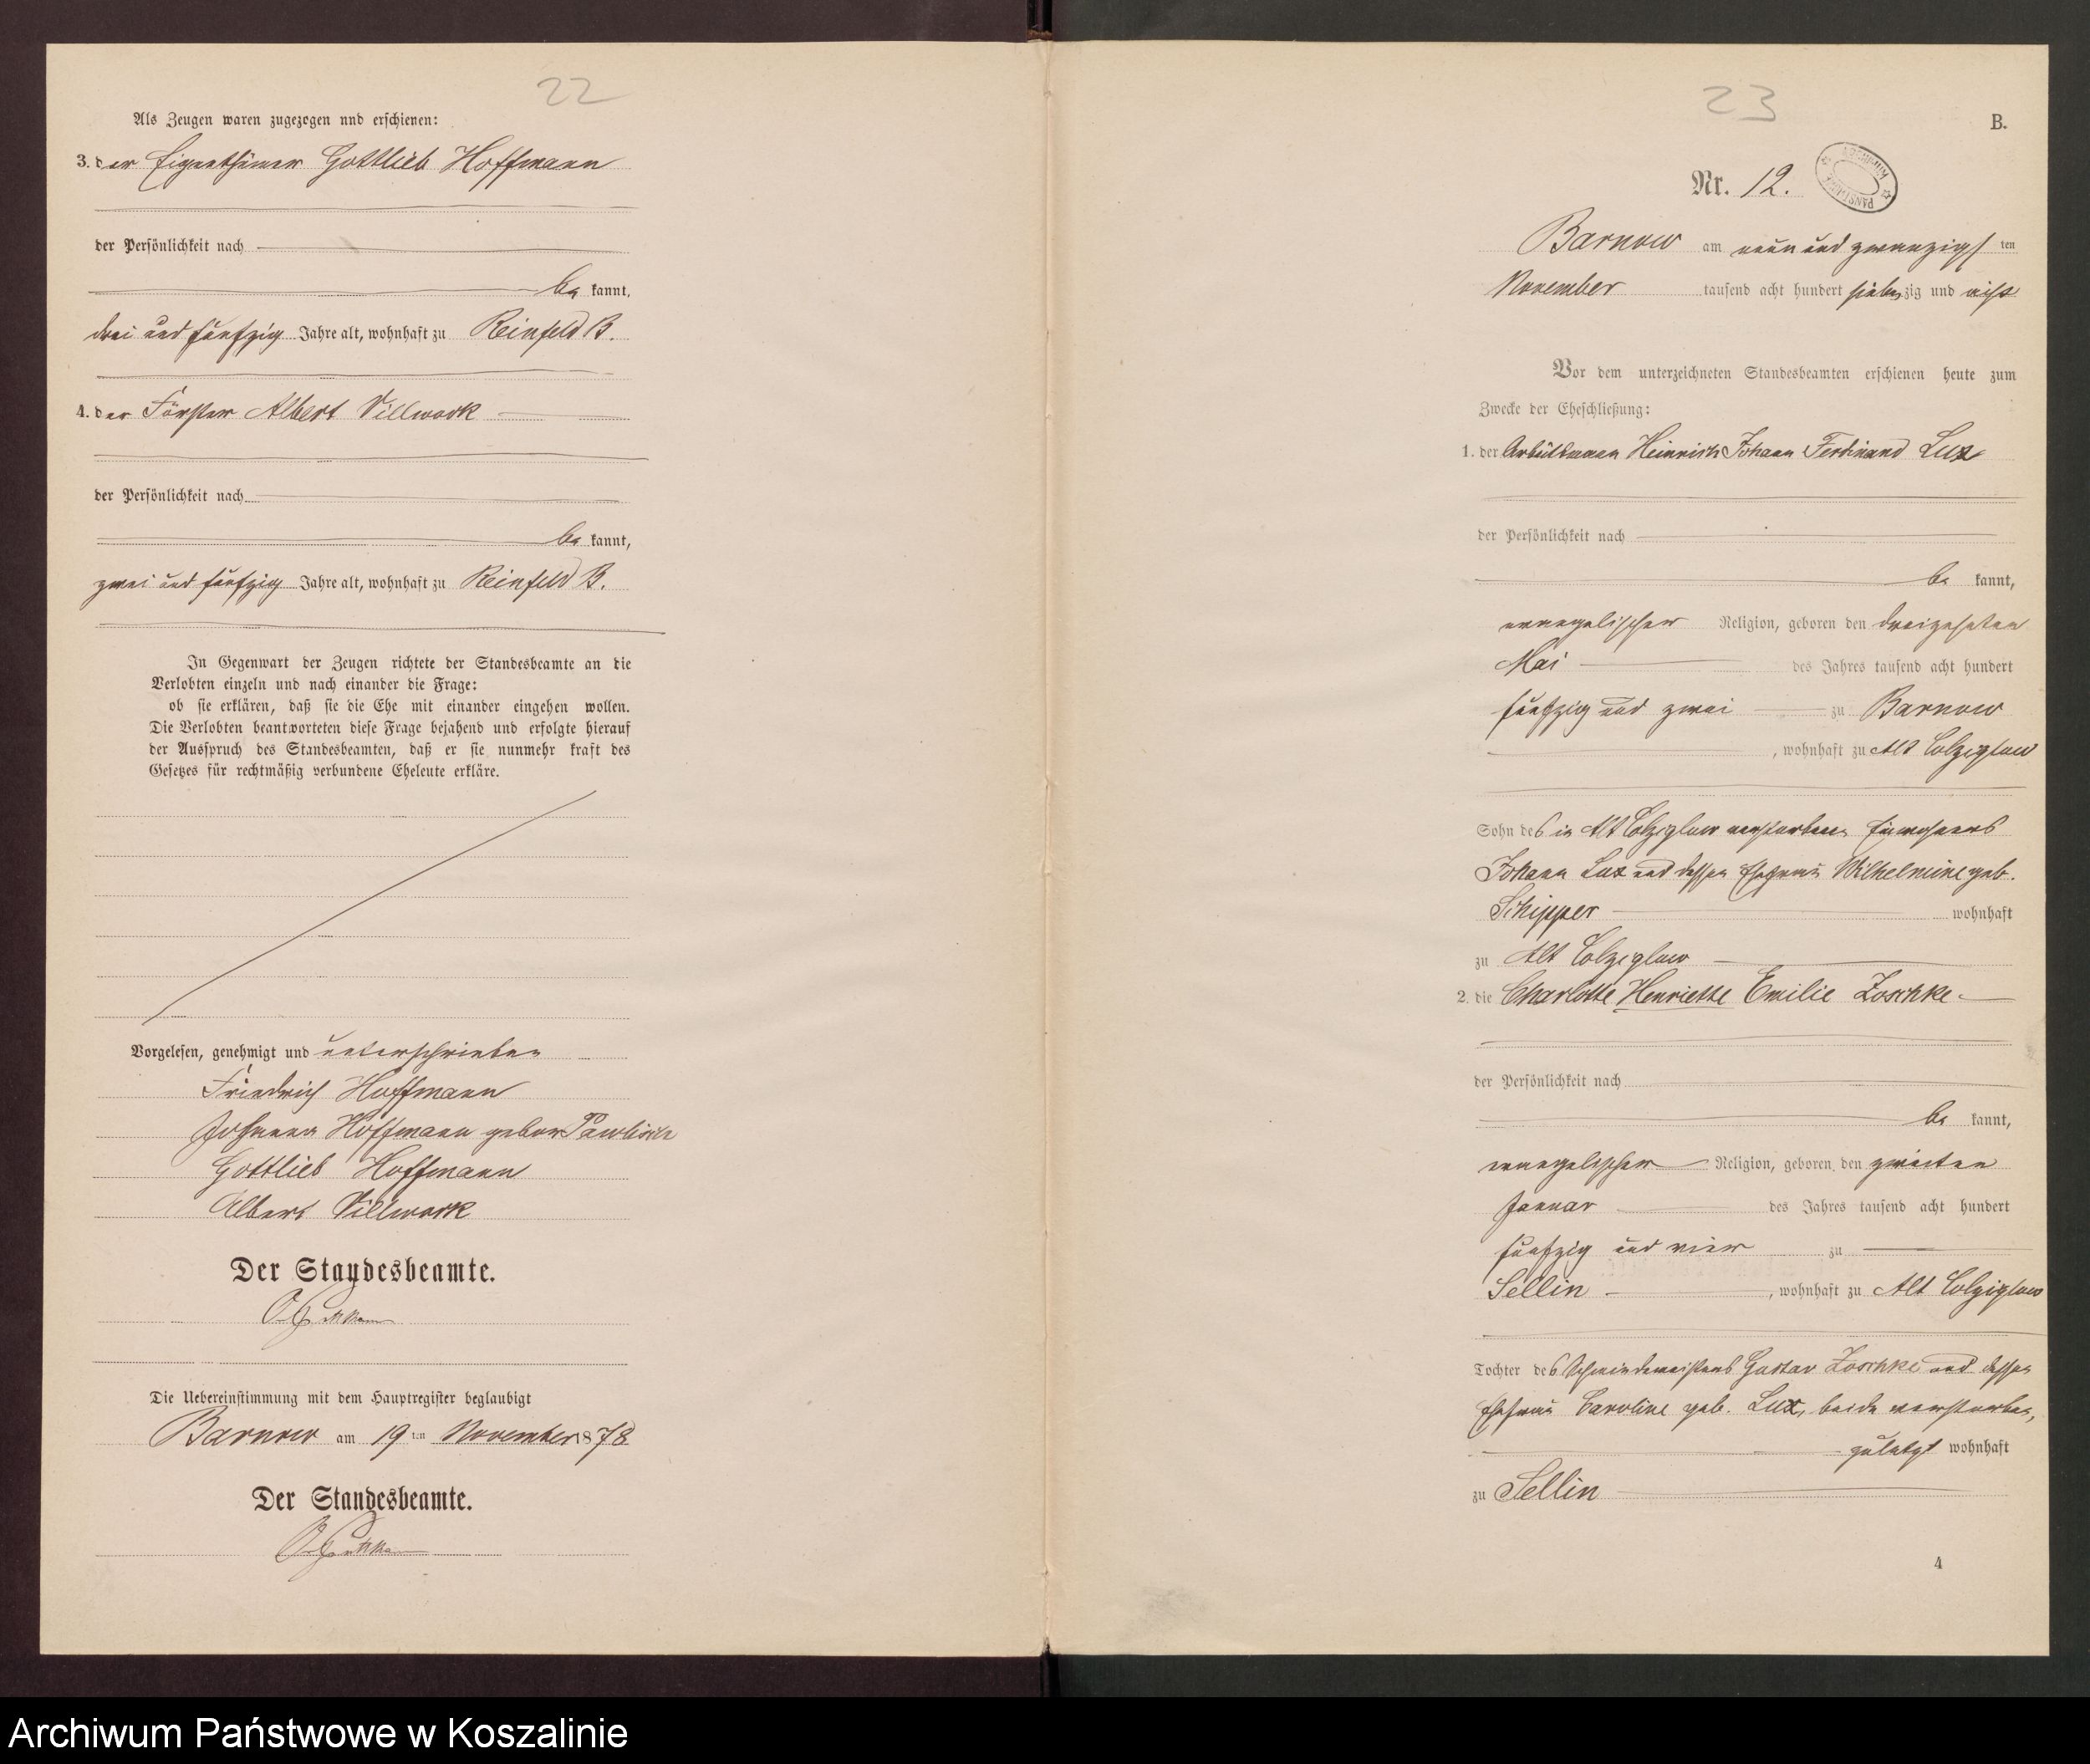 22
Als Zeugen waren zugezogen und erschienen:
3. der Eigenthümer Gottlieb Hoffmann
der Persönlichkeit nach
be kannt,
drei und fünfzig Jahre alt, wohnhaft zu Reinfeld B.
4. der Förster Albert Villwock
der Persönlichkeit nach
be kannt,
zwei und fünfzig Jahre alt, wohnhaft zu Reinfeld B.
In Gegenwart der Zeugen richtete der Standesbeamte an die
Verlobten einzeln und nach einander die Frage:
ob sie erklären, daß sie die Ehe mit einander eingehen wollen.
Die Verlobten beantworteten diese Frage bejahend und erfolgte hierauf
der Ausspruch des Standesbeamten, daß er sie nunmehr kraft des
Gesetzes für rechtmäßig verbundene Eheleute erkläre.
Vorgelesen, genehmigt und unterschrieben
Friedrich Hoffmann
Johanna Hoffmann
Gottlieb Hoffmann
Albert Villwock
Der Standesbeamte.
Die Uebereinstimmung mit dem Hauptregister beglaubigt
Barnow am 19 ten November 1878
Der Standesbeamte.
23
B.
Nr. 12.
ARCHIWUM PAŃSTWOWE
Barnow am neun und zwanzigsten
November tausend acht hundert siebenzig und acht
Vor dem unterzeichneten Standesbeamten erschienen heute zum
Zwecke der Eheschließung:
1. der Arbeitsmann Heinrich Johann Ferdinand Lux
der Persönlichkeit nach
be kannt,
evangelischer Religion, geboren den dreizehnten
Mai des Jahres tausend acht hundert
fünfzig und zwei zu Barnow
, wohnhaft zu Alt Colziglow
Sohn des in Alt Colziglow verstorbenen Einwohners
Johann Lux und dessen Ehefrau Wilhelmine geb.
Schipper wohnhaft
zu Alt Colziglow
2. die Charlotte Henriette Emilie Zoschke
der Persönlichkeit nach
be kannt,
evangelischer Religion, geboren den zweiten
Januar des Jahres tausend acht hundert
fünfzig und vier zu
Sellin , wohnhaft zu Alt Colziglow
Tochter des Schmiedemeisters Gustav Zoschke und dessen
Ehefrau Caroline geb. Lux, beide verstorben,
zuletzt wohnhaft
zu Sellin
4
Archiwum Państwowe w Koszalinie